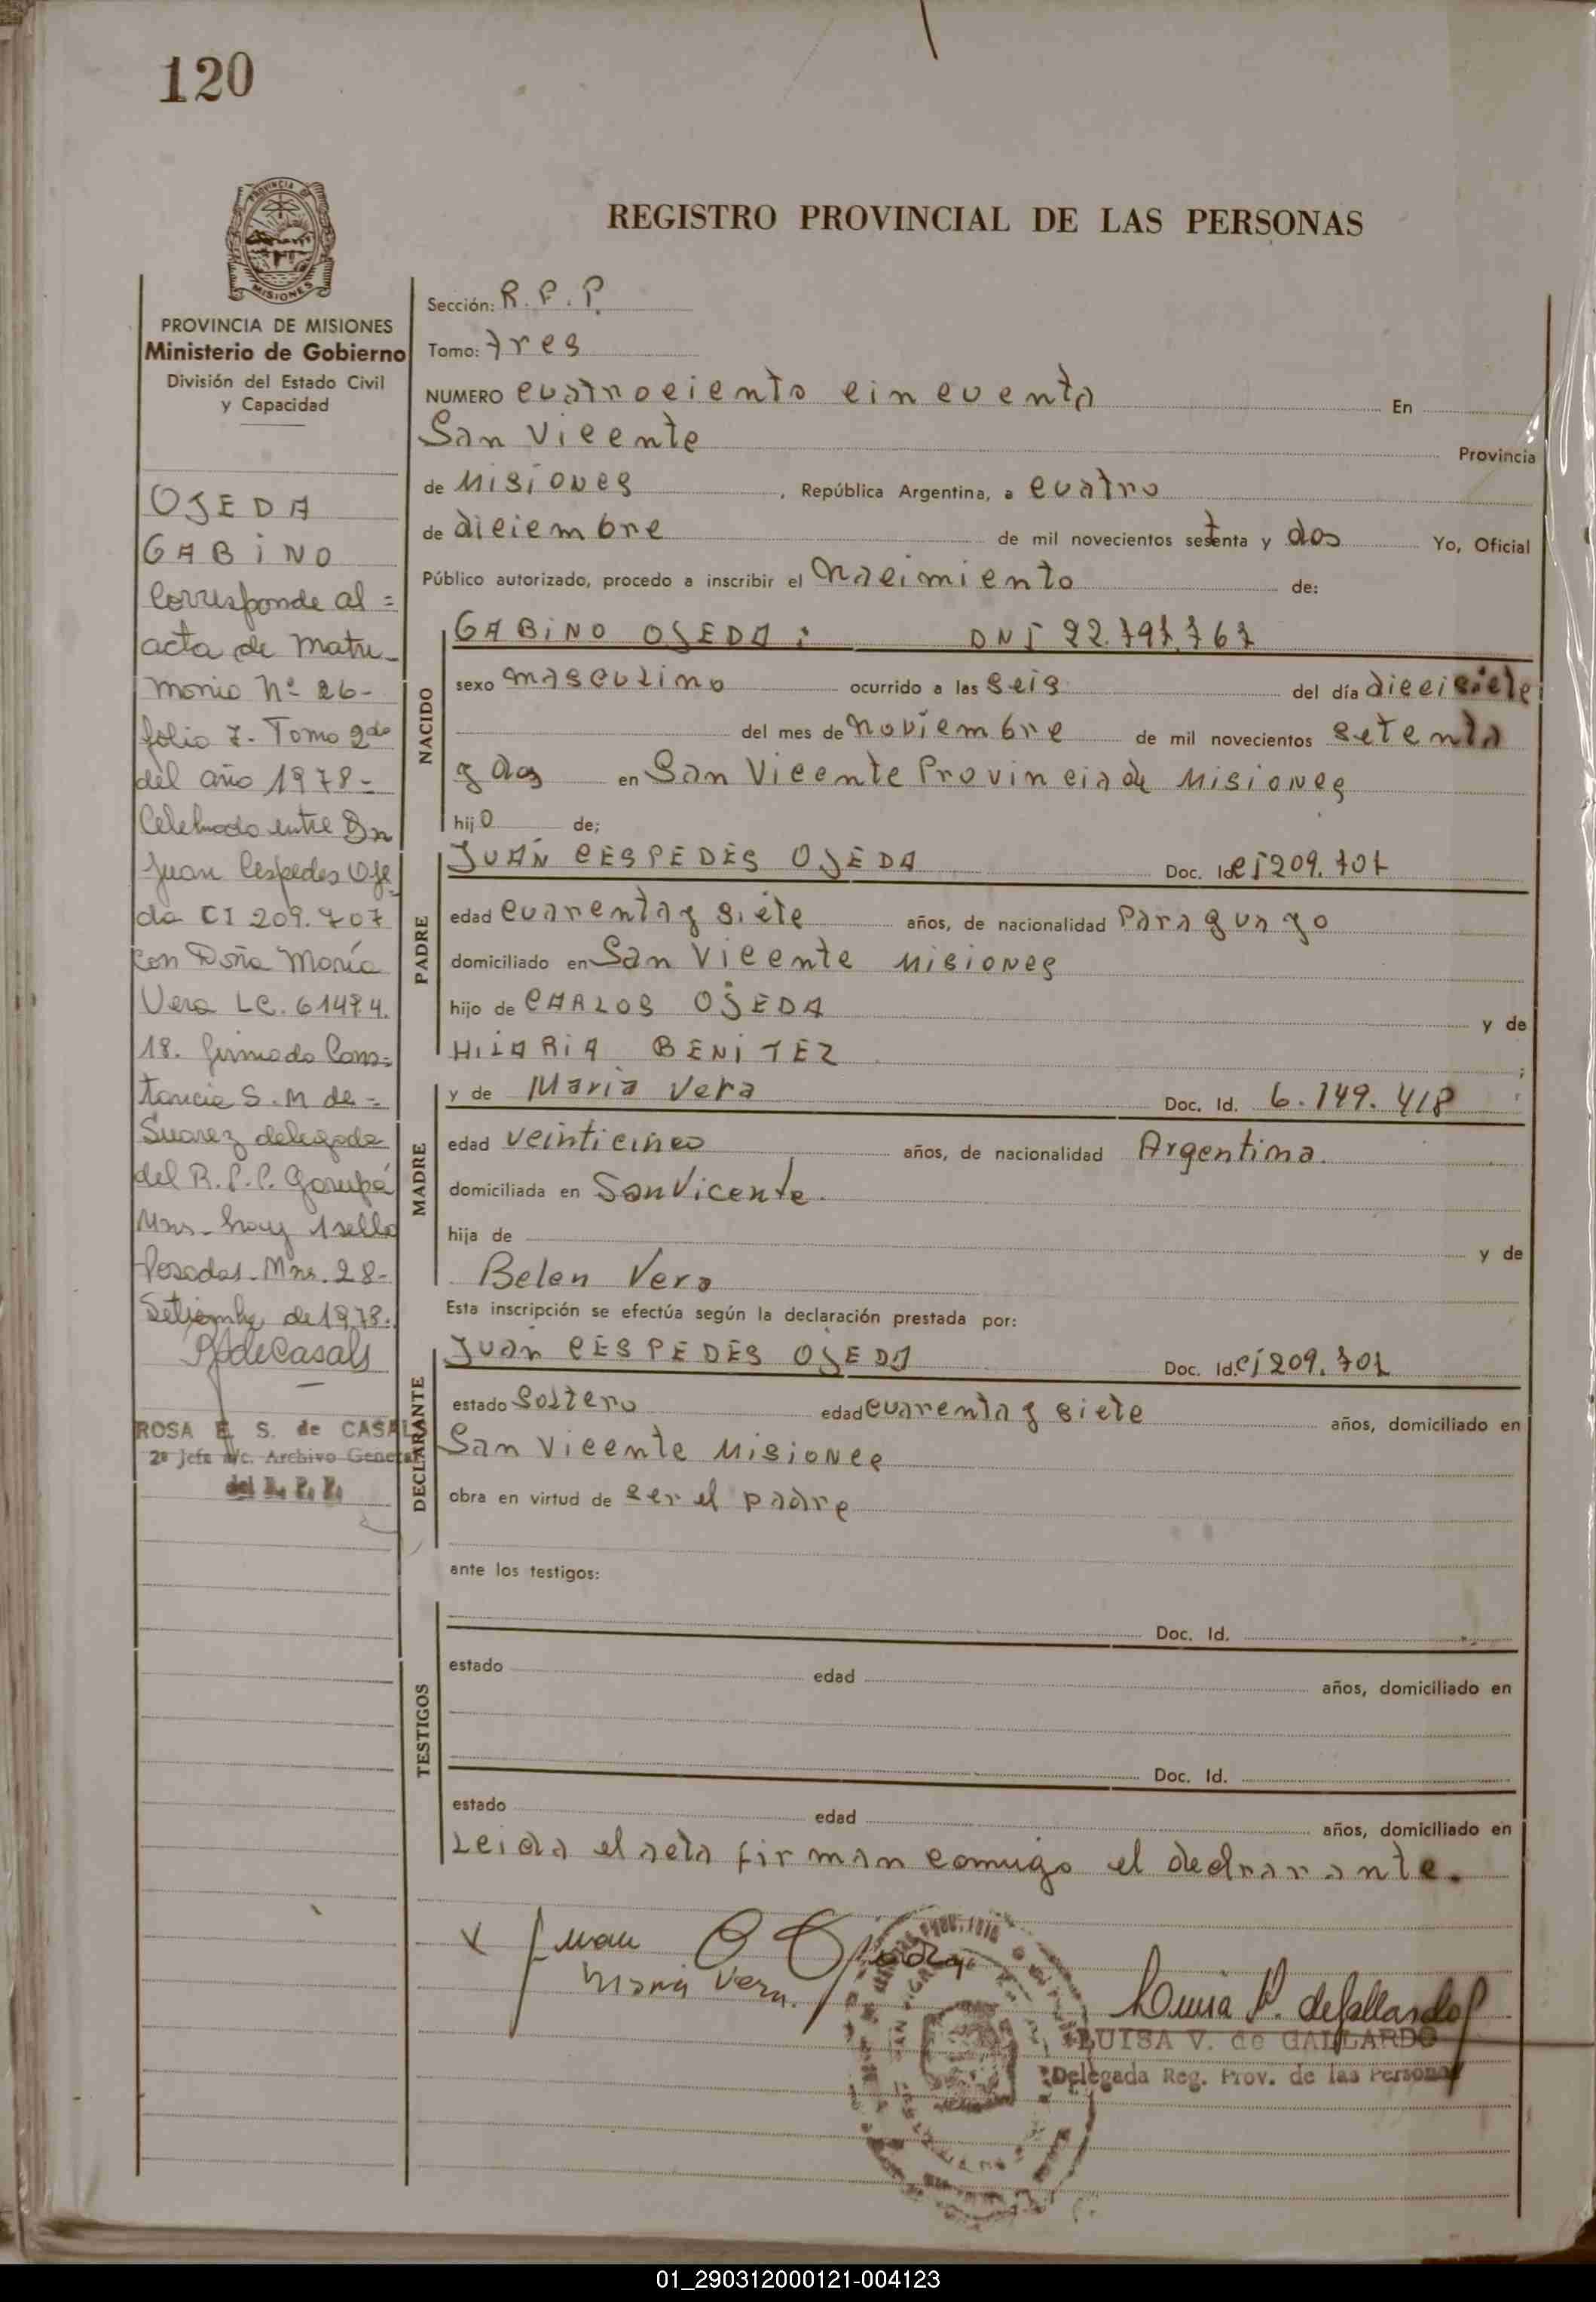 120
PROVINCIA DE MISIONES
PROVINCIA DE MISIONES
Ministerio de Gobierno
División del Estado Civil
y Capacidad
OJEDA
GABINO
Corresponde al =
acta de Matri-
monio Nº 26-
folio 7- Tomo 2do
del año 1978-
Celebrado entre Dn
Juan Cespedes Oje-
da CI 209.707
con Doña María
Vera LC. 6149.4.
18. firmado Cons=
tancia S. M de =
Suarez delegada
del R.P.P. Garupá
Mns- hay 1 sello
Posadas- Mns. 28-
Setiembre de 1978.
ROSA E. S. de CASALS
2ª Jefa a/c. Archivo General
del R. P. P.
REGISTRO PROVINCIAL DE LAS PERSONAS
Sección: R.P.P.
Tomo: tres
NUMERO cuatrociento cincuenta En
San Vicente Provincia
de Misiones, República Argentina, a cuatro
de diciembre de mil novecientos setenta y dos Yo, Oficial
Público autorizado, procedo a inscribir el nacimiento de:
NACIDO
GABINO OJEDA: DNI 22.797.767
sexo masculino ocurrido a las seis del día diecisiete
del mes de noviembre de mil novecientos setenta
y dos en San Vicente Provincia de Misiones
hijo de;
PADRE
JUAN CESPEDES OJEDA Doc. Id. CI 209.707
edad cuarenta y siete años, de nacionalidad Paraguayo
domiciliado en San Vicente Misiones
hijo de CARLOS OJEDA y de
HILARIA BENITEZ ;
MADRE
y de Maria Vera Doc. Id. 6.149.418
edad veinticinco años, de nacionalidad Argentina.
domiciliada en San Vicente.
hija de y de
Belen Vera
Esta inscripción se efectúa según la declaración prestada por:
DECLARANTE
Juan CESPEDES OJEDA Doc. Id. CI 209.707
estado soltero edad cuarenta y siete años, domiciliado en
San Vicente Misiones
obra en virtud de ser el padre
ante los testigos:
TESTIGOS
Doc. Id.
estado edad años, domiciliado en
Doc. Id.
estado edad años, domiciliado en
Leida el acta firman comigo el declarante.
x Juan C Ojeda
Maria Vera.
Luisa V. de Gallardo
LUISA V. de GALLARDO
Delegada Reg. Prov. de las Personas
01_290312000121-004123